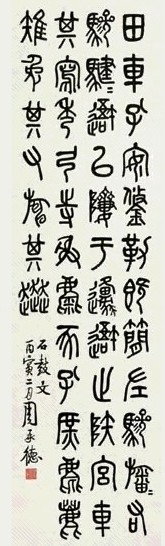 田車孔安鋚勒既簡左驂旛右
驂騝〻避以隮于邍避止陜宮車
其寫秀弓寺射麋豕孔庶麀
雉兔其又其
石鼓文
丙寅二月周承德